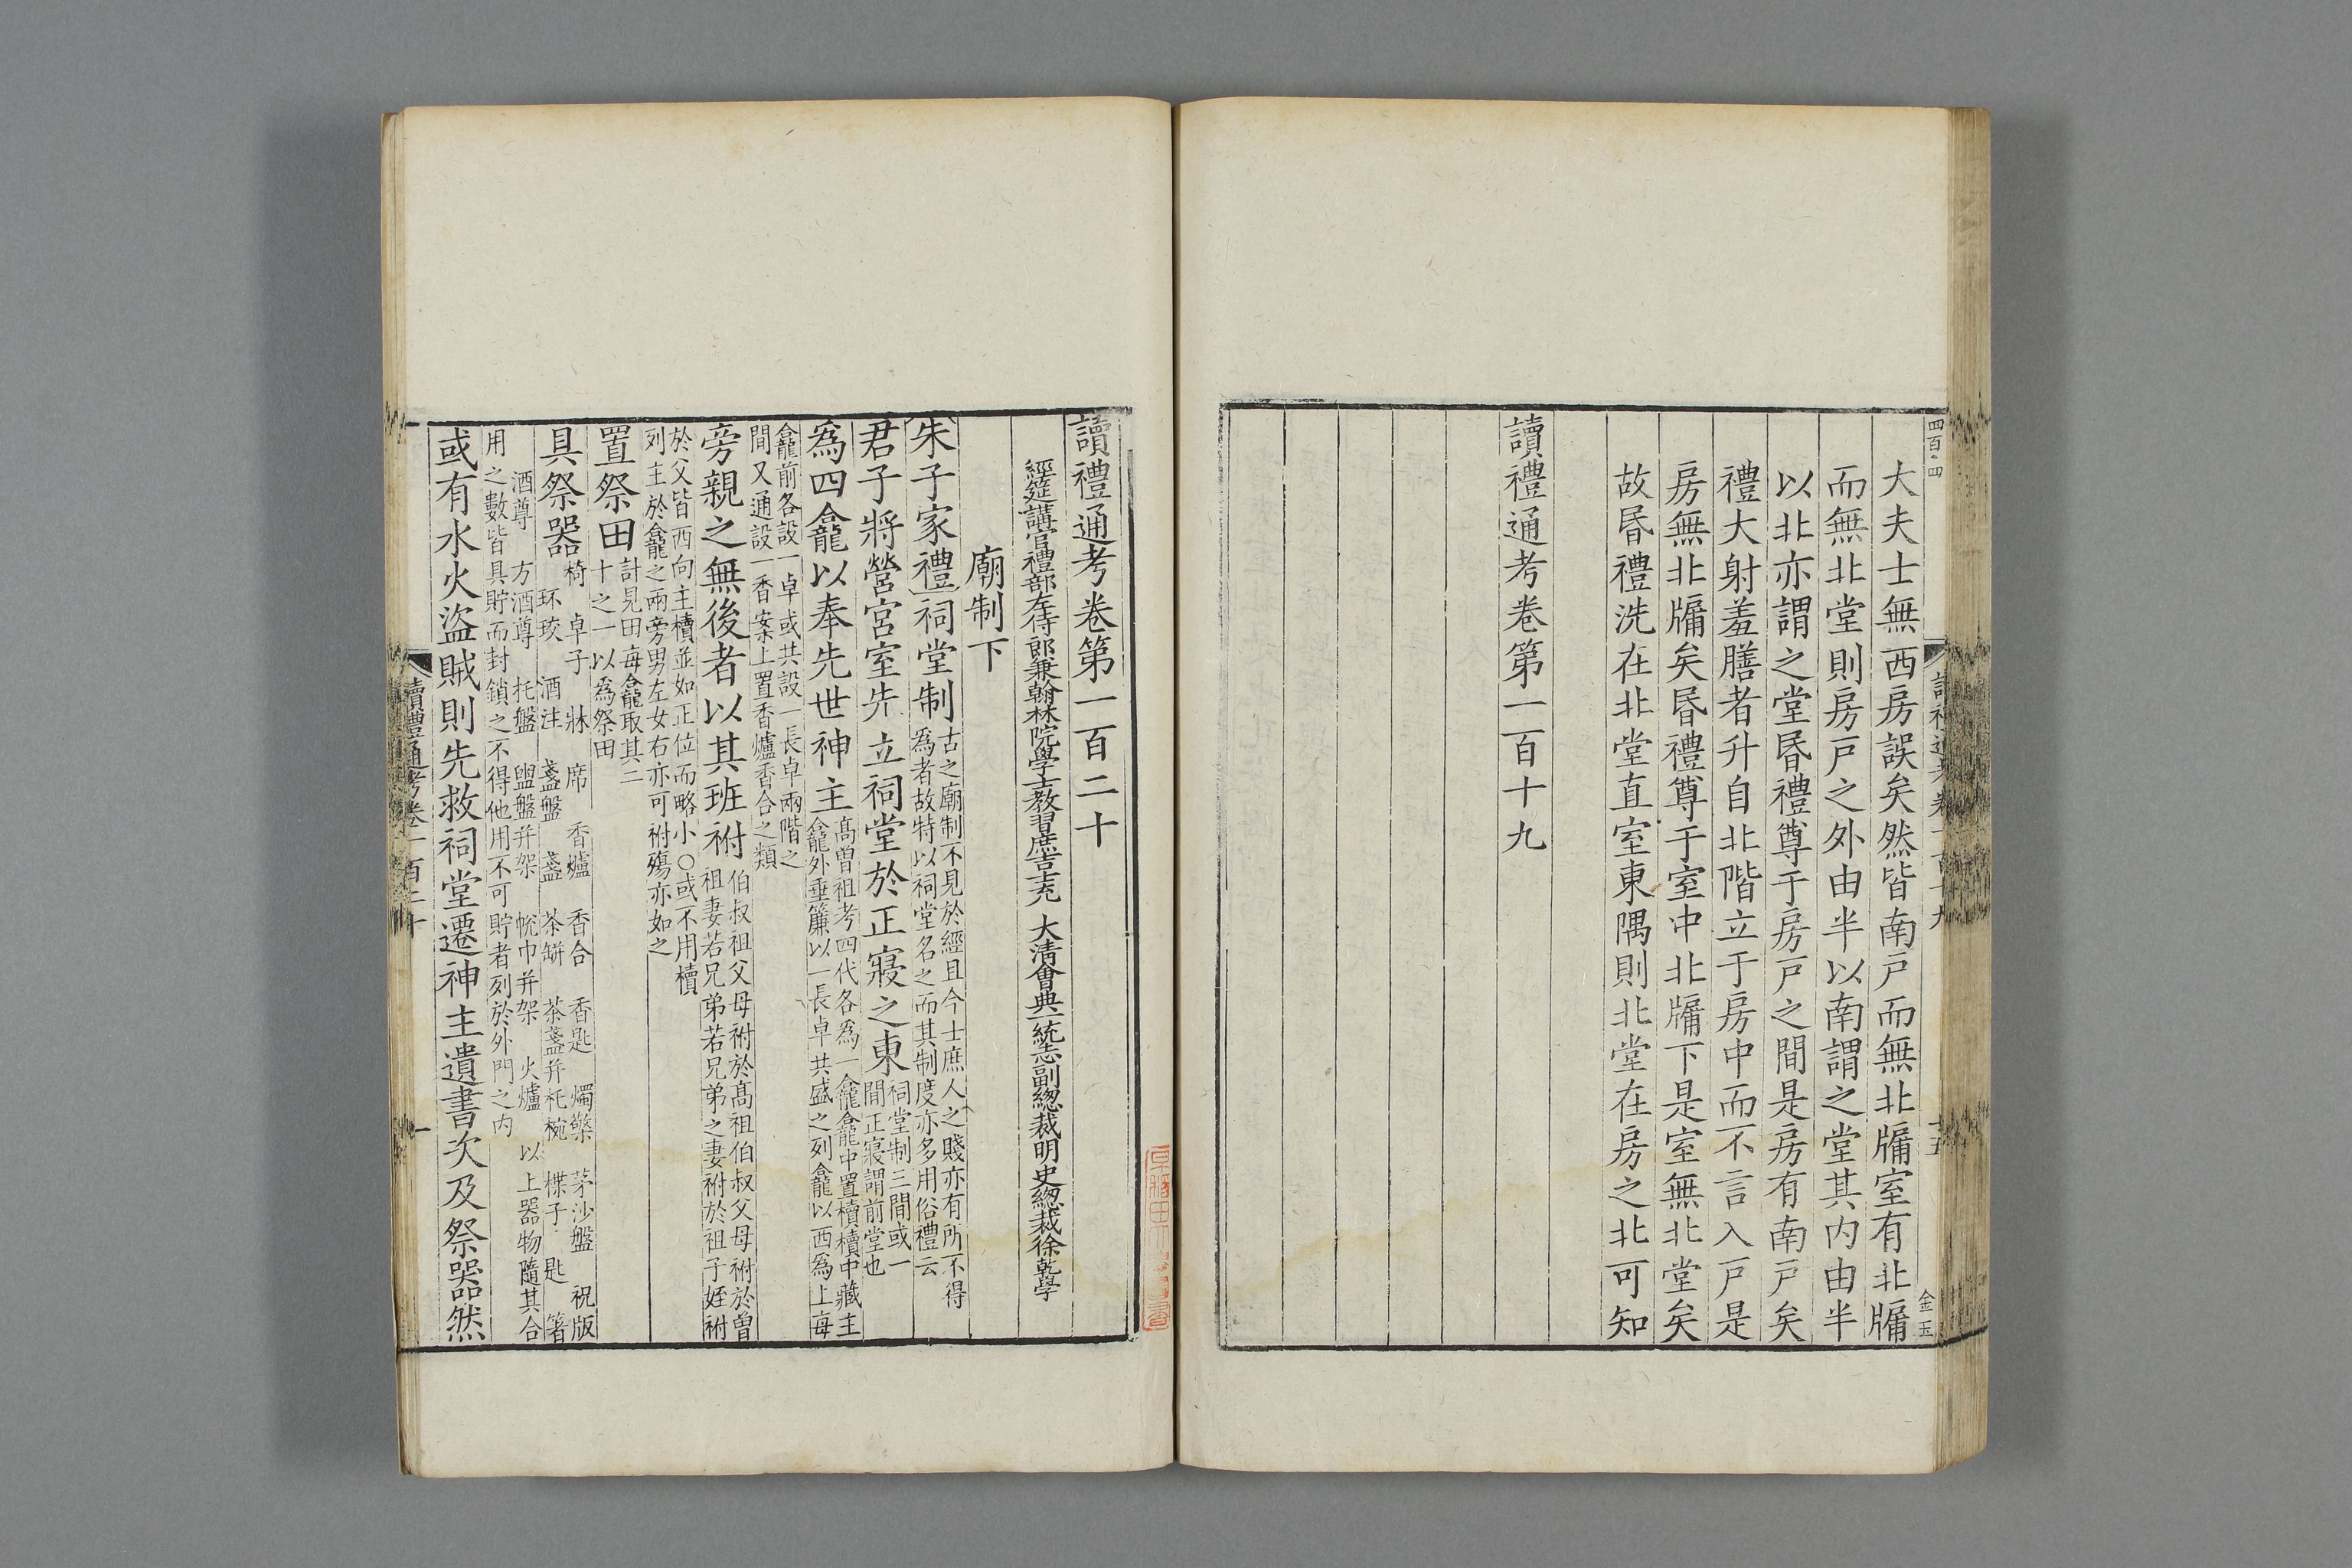 四百四
大夫士無西房誤矣然皆南戶而無北牖室有北牖
而無北堂則房戶之外由半以南謂之堂其内由半
以北亦謂之堂昏禮尊于房戶之間是房有南戶矣
禮大射羞膳者升自北階立于房中而不言入戶是
房無北牖矣昏禮尊于室中北牖下是室無北堂矣
故昏禮洗在北堂直室東隅則北堂在房之北可知
讀禮通考卷第一百十九
金玉
讀禮通考卷第一百二十
經筵講官禮部左侍郎兼翰林院學士教習庶吉士充 大清會典一統志副總裁明史總裁徐乾學
廟制下
朱子家禮祠堂制古之廟制不見於經且今士庶人之賤亦有所不得
爲者故特以祠堂名之而其制度亦多用俗禮云
君子將營宮室先立祠堂於正寢之東祠堂制三間或一
間正寢謂前堂也
爲四龕以奉先世神主高曾祖考四代各爲一龕龕中置櫝櫝中藏主
龕外垂簾以一長卓共盛之列龕以西爲上每
龕前各設一卓或共設一長卓兩階之
間又通設一香案上置香爐香合之類
旁親之無後者以其班祔伯叔祖父母祔於高祖伯叔父母祔於曾
祖妻若兄弟若兄弟之妻祔於祖子姪祔
於父皆西向主櫝並如正位而略小○或不用櫝
列主於龕之兩旁男左女右亦可祔殤亦如之
置祭田計見田每龕取其二
十之一以爲祭田
具祭器椅 卓子 牀 席 香爐 香合 香匙 燭檠 茅沙盤 祝版
环珓 酒注 盞盤 盞 茶缾 茶盞并托椀 楪子 匙 箸
酒尊 方酒尊 托盤 盥盤并架 帨巾并架 火爐 以上器物隨其合
用之數皆具貯而封鎖之不得他用不可貯者列於外門之内
或有水火盜賊則先救祠堂遷神主遺書次及祭器然
讀禮通考卷一百二十
一